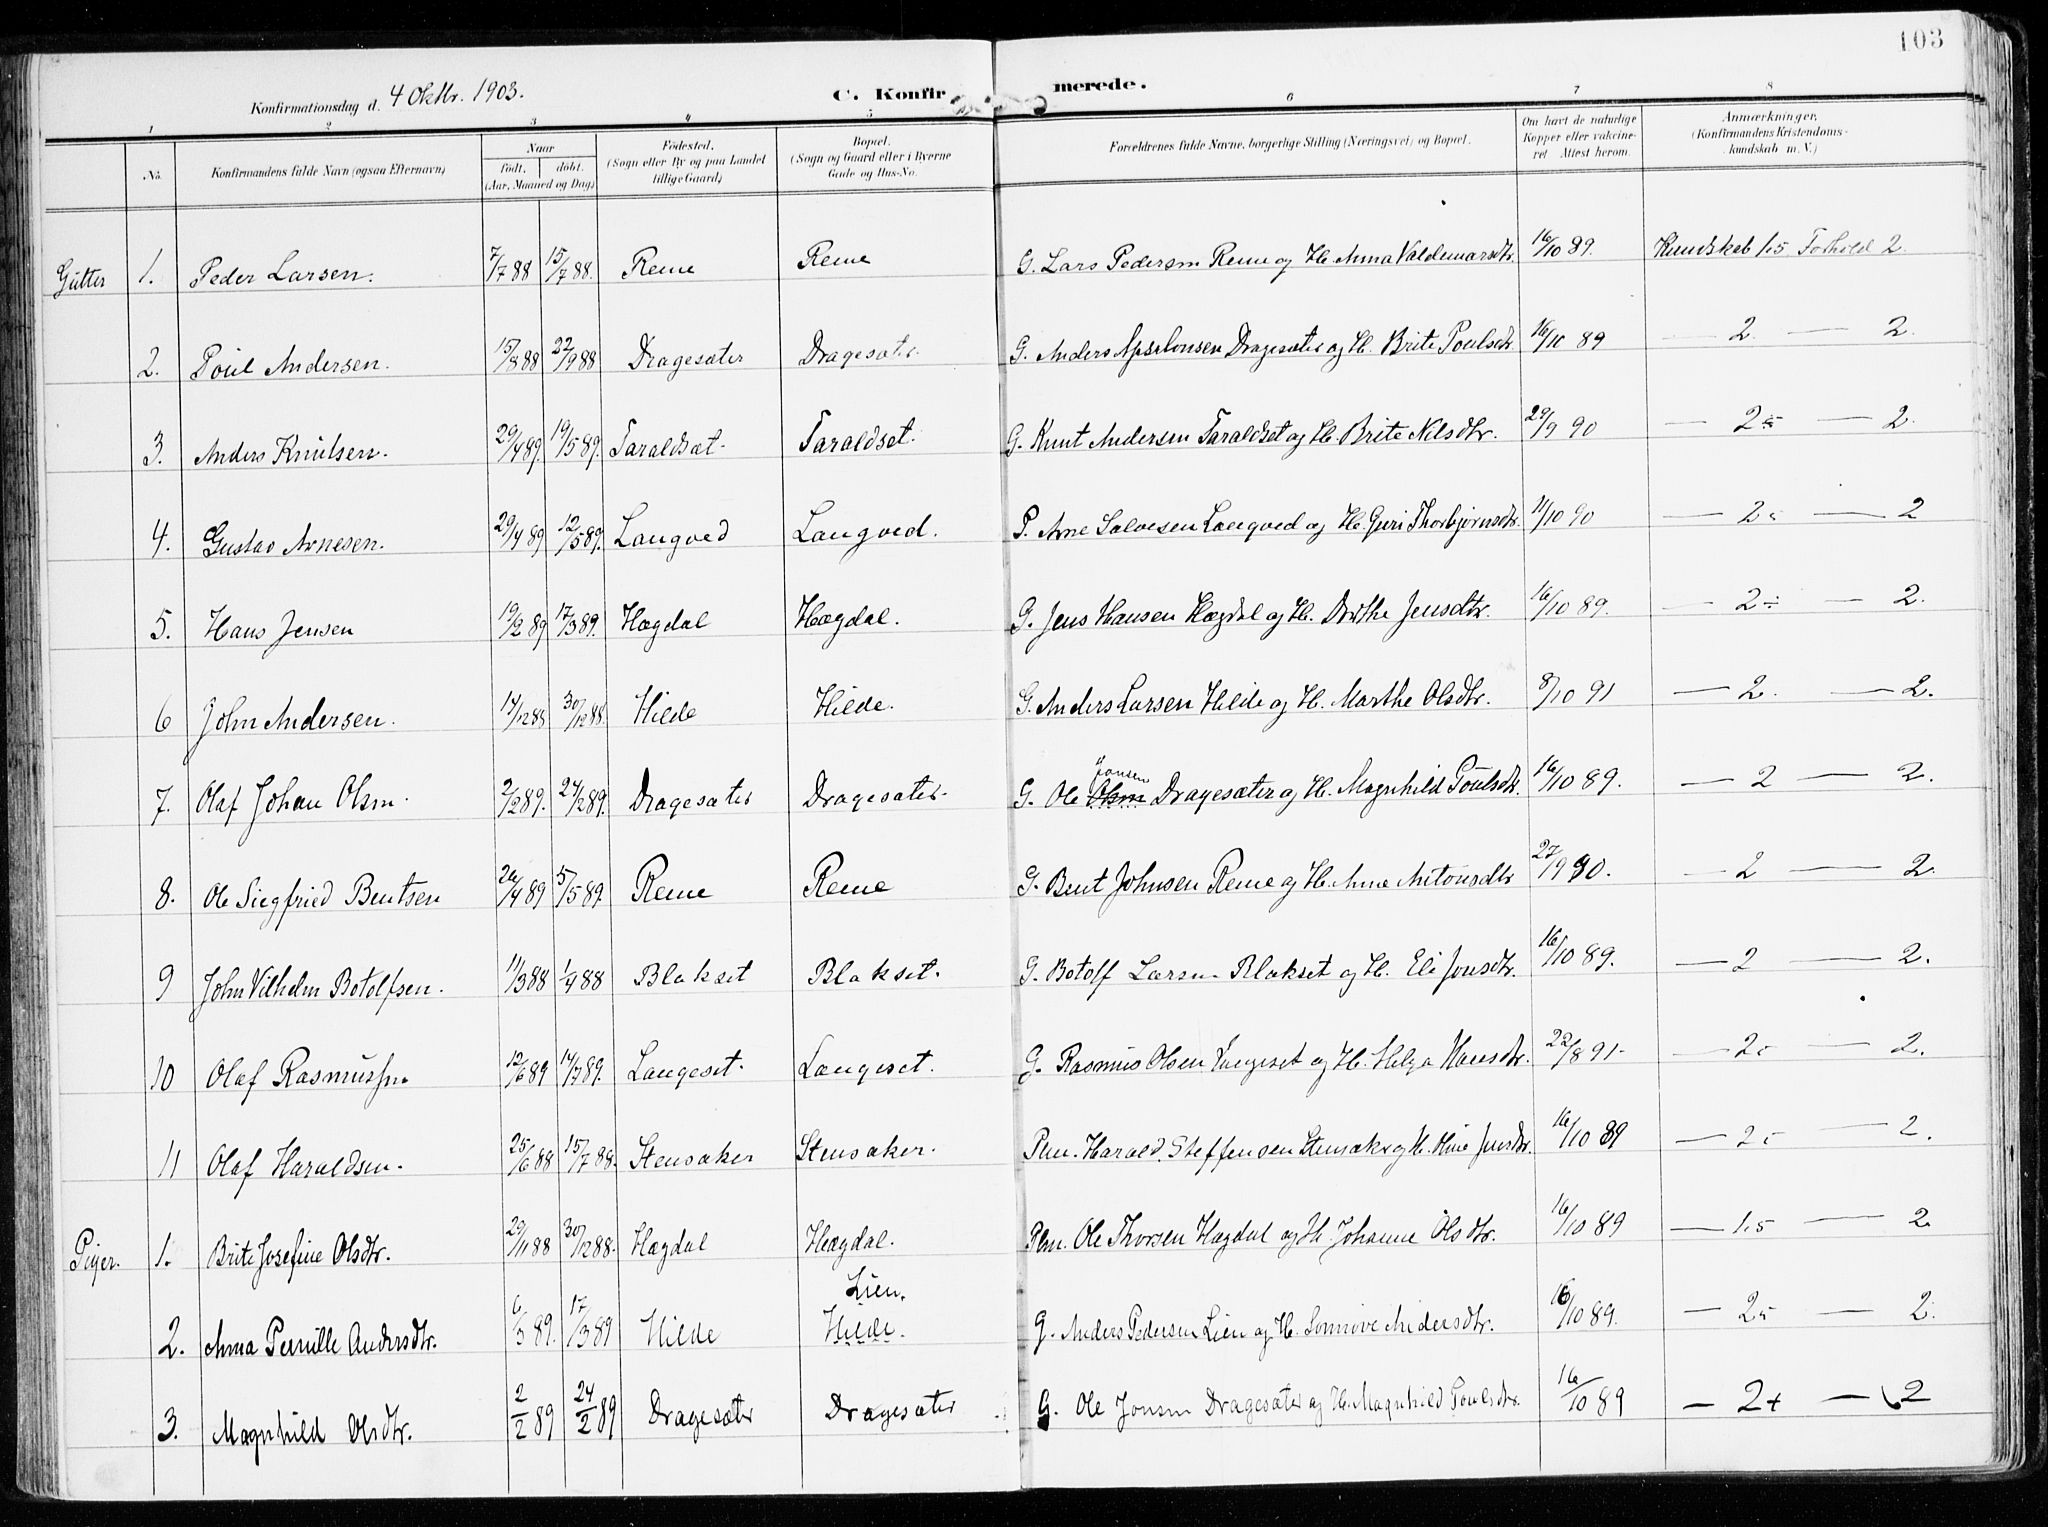 103
Konfirmationsdag d. 4 Oktbr. 1903.
C. Konfirmerede.
1 2 3 4 5 6 7 8
No. Konfirmandens fulde Navn (ogsaa Efternavn)
Naar født. døbt. (Aar, Maaned og Dag)
Fødested. (Sogn eller By og paa Landet tillige Gaard)
Bopæl. (Sogn og Gaard eller i Byerne Gade og Hus-No.
Forældrenes fulde Navne, borgerlige Stilling (Næringsvei) og Bopæl.
Om havt de naturlige Kopper eller vakcineret. Attest herom.
Anmærkninger. (Konfirmandens Kristendomskundskab m. V.)
Gutter 1. Peder Larsen. 7/7 88 15/7 88. Reme Reme G. Lars Pedersen Reme og H. Anna Valdemarsdtr. 16/10 89. Kundskab 1.5 Forhold 2.
2. Poul Andersen. 15/8 88 22/9 88 Dragesæter Dragesæter. G. Anders Apselonsen Dragesæter og H. Brite Poulsdtr. 16/10 89 — 2. — 2.
3. Anders Knutsen. 29/4 89. 19/5 89. Taraldset. Taraldset. G. Knut Andersen Taraldset og H. Brite Nilsdtr. 29/9 90 — 2 — 2.
4. Gustav Arnesen. 29/4 89 12/5 89. Langved Langved. P. Arne Salvesen Langved og H. Guri Thorbjørnsdtr. 11/10 90 — 2 — 2
5. Hans Jensen 19/2 89 17/3 89. Hægdal Hægdal. G. Jens Hansen Hægdal og H. Dorthe Jensdtr. 16/10 89. — 2 — 2.
6 John Andersen. 14/12 88 30/12 88. Hilde Hilde. G. Anders Larsen Hilde og H. Marthe Olsdtr. 8/10 91 — 2. — 2.
7. Olaf Johan Olsen. 2/2 89. 24/2 89. Dragesæter Dragesæter. G. Ole Jonsen Olsen Dragesæter og H. Magnhild Poulsdtr. 16/10 89. — 2 — 2.
8. Ole Siegfried Bentsen 20/4 89 5/5 89. Reme Reme G. Bent Johnsen Reme og H. Anne Antonsdtr 27/9 90. — 2 — 2.
9 John Vilhelm Botolfsen. 11/3 88 1/4 88 Blakset Blakset. G. Botolf Larsen Blakset og H. Eli Jonsdtr. 16/10 89. — 2 — 2.
10 Olaf Rasmussen 12/6 89 14/7 89. Langeset. Langeset. G. Rasmus Olsen Langeset og H. Helga Hansdtr. 22/8 91. — 2 — 2.
11 Olaf Haraldsen. 25/6 88 15/7 88. Stensaker Stensaker. Plm. Harald Steffensen Stensaker og H. Oline Jensdtr. 16/10 89 — 2 — 2.
Piger. 1. Brite Josefine Olsdtr. 29/11 88 30/12 88. Hægdal Hægdal. Plm. Ole Thorsen Hægdal og H. Johanne Olsdtr. 16/10 89 — 1.5 — 2.
2. Anna Pernille Andersdtr. 6/3 89. 17/3 89 Hilde Lien. Hilde. G. Anders Pedersen Lien og H. Sønnøve Andersdtr. 16/10 89. — 2 — 2.
3. Magnhild Olsdtr. 2/2 89 24/2 89 Dragesæter Dragesæter G. Ole Jonsen Dragesæter og H. Magnhild Poulsdtr. 16/10 89 — 2+ — 2